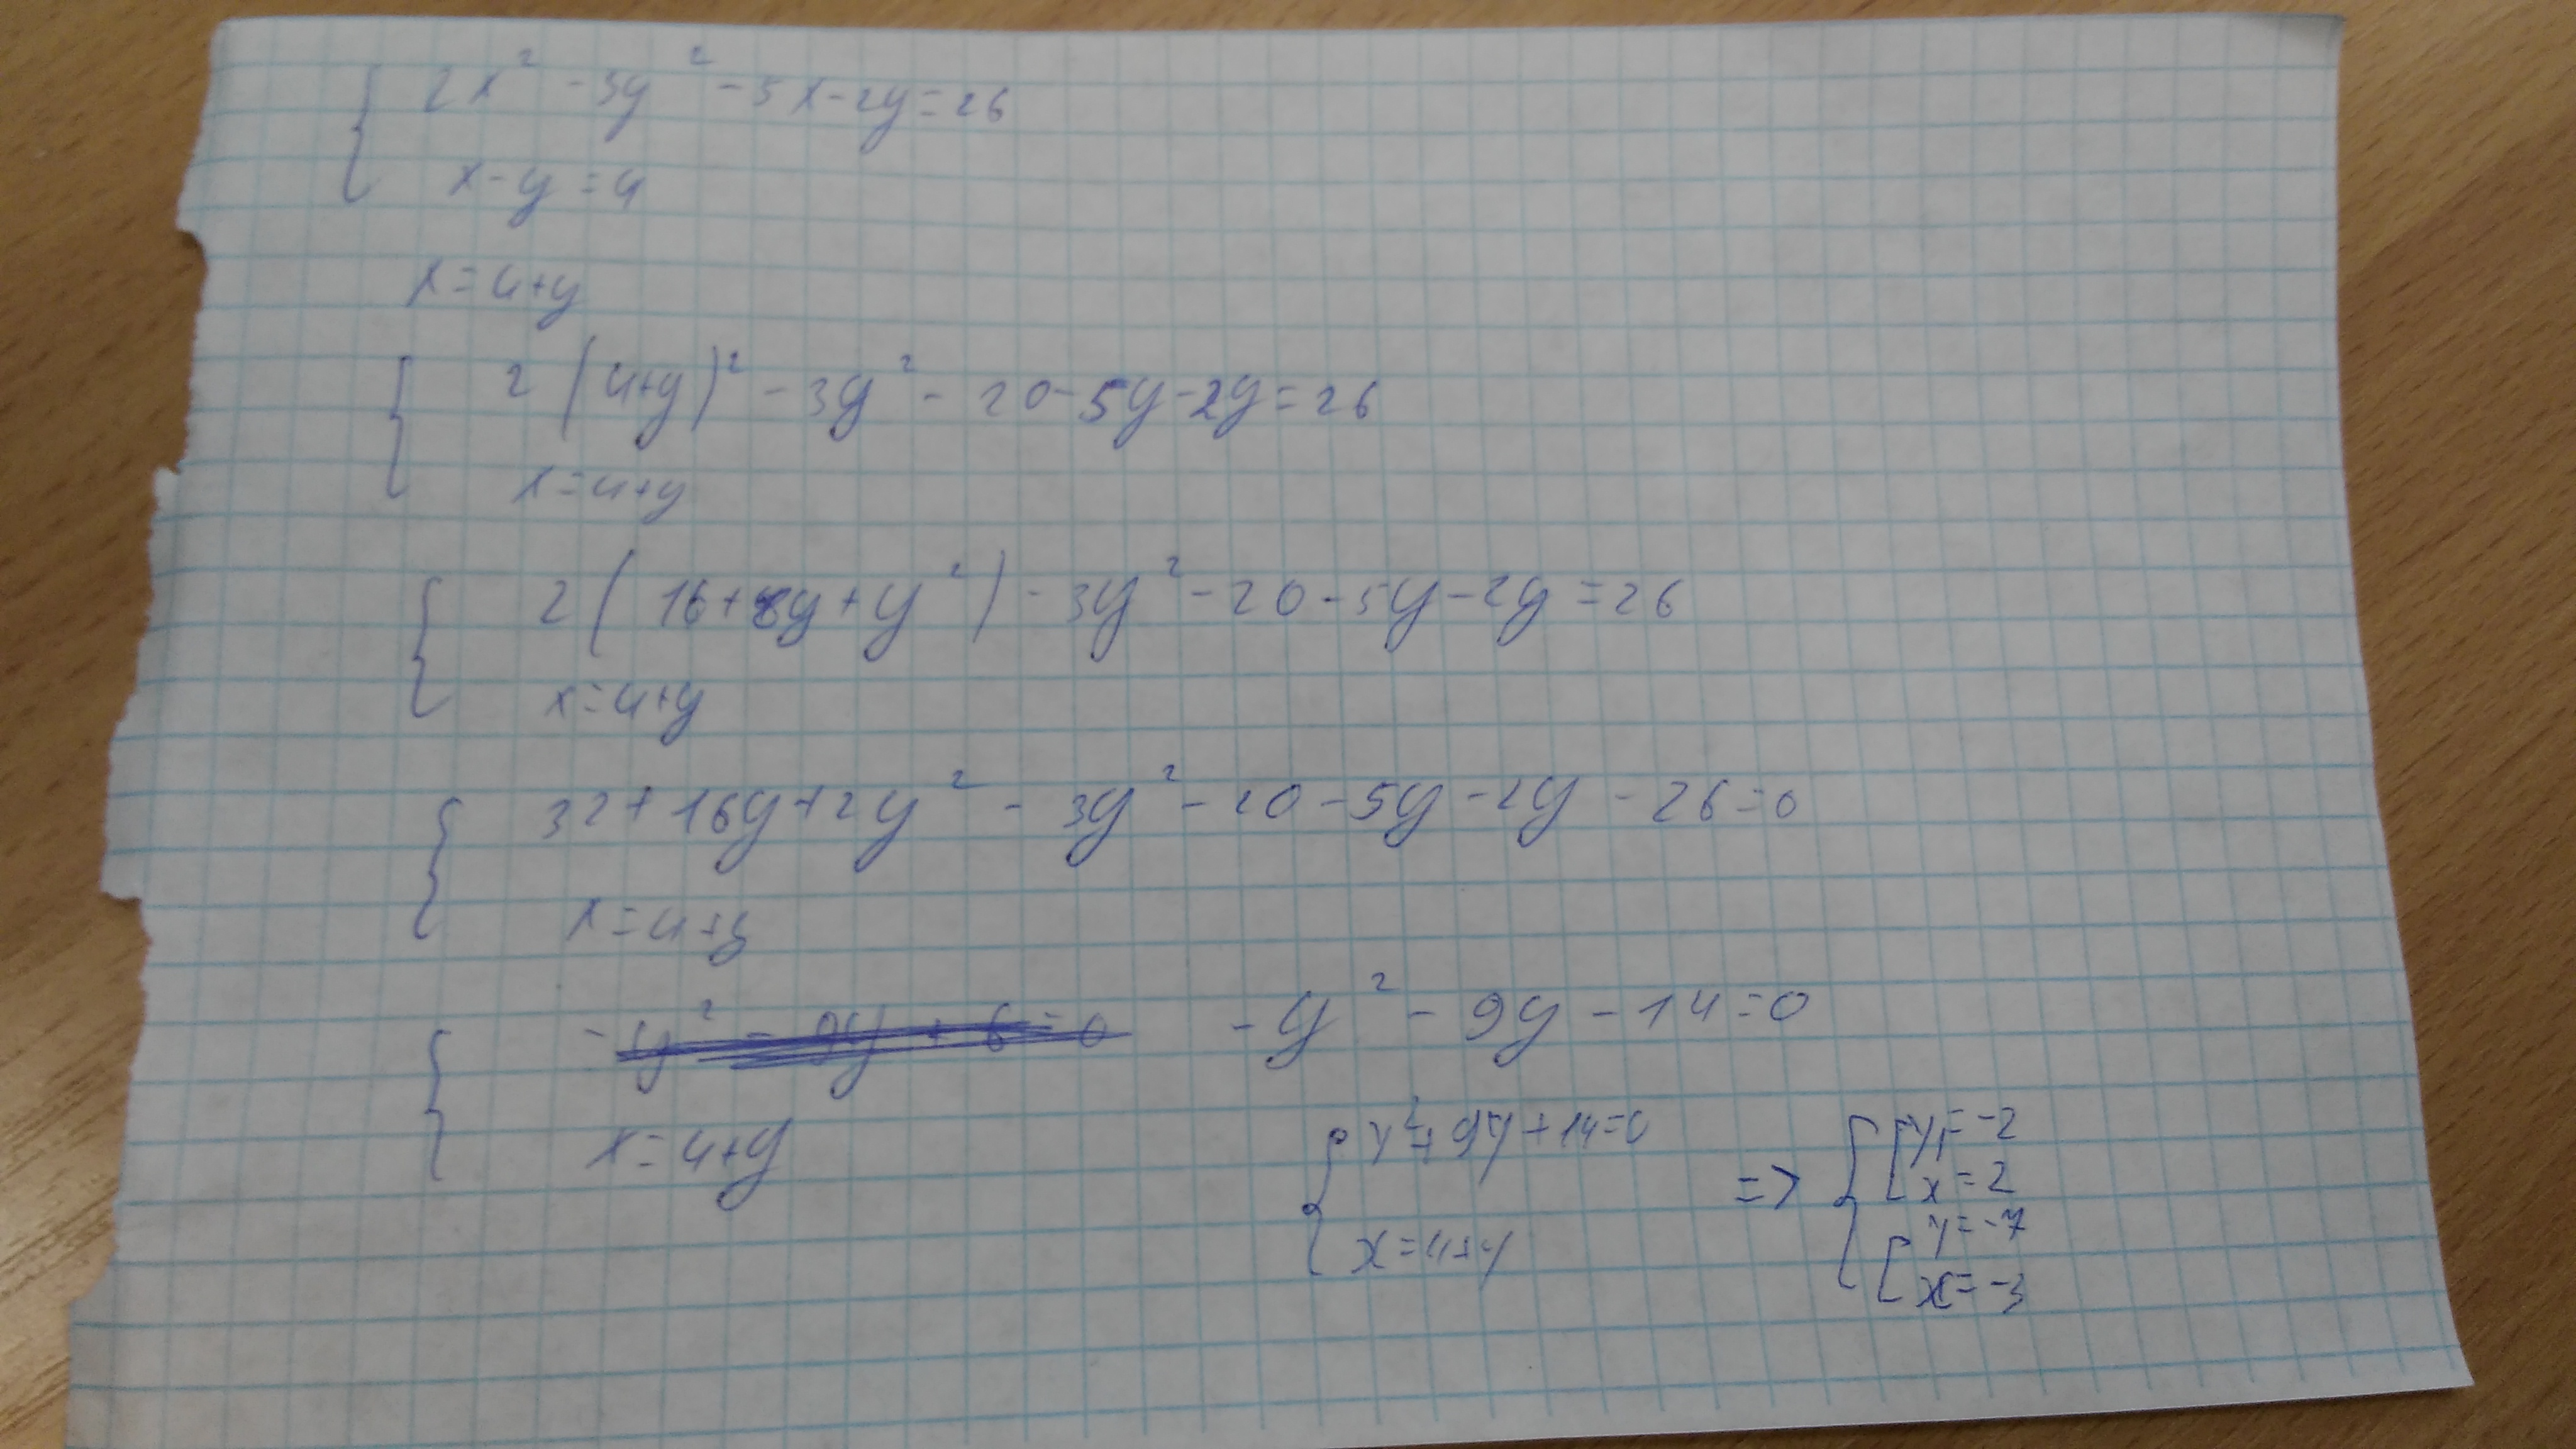 2x² - 3y² - 5x - 2y = 26
x - y = 4
x = 4+y
2(4+y)² - 3y² - 20 - 5y - 2y = 26
x = 4+y
2(16+8y+y²) - 3y² - 20 - 5y - 2y = 26
x = 4+y
32 + 16y + 2y² - 3y² - 20 - 5y - 2y - 26 = 0
x = 4+y
-y² - 9y + 6 = 0 -y² - 9y - 14 = 0
x = 4+y
y² + 9y + 14 = 0
x = 4+y
=>
y = -2
x = 2
y = -7
x = -3